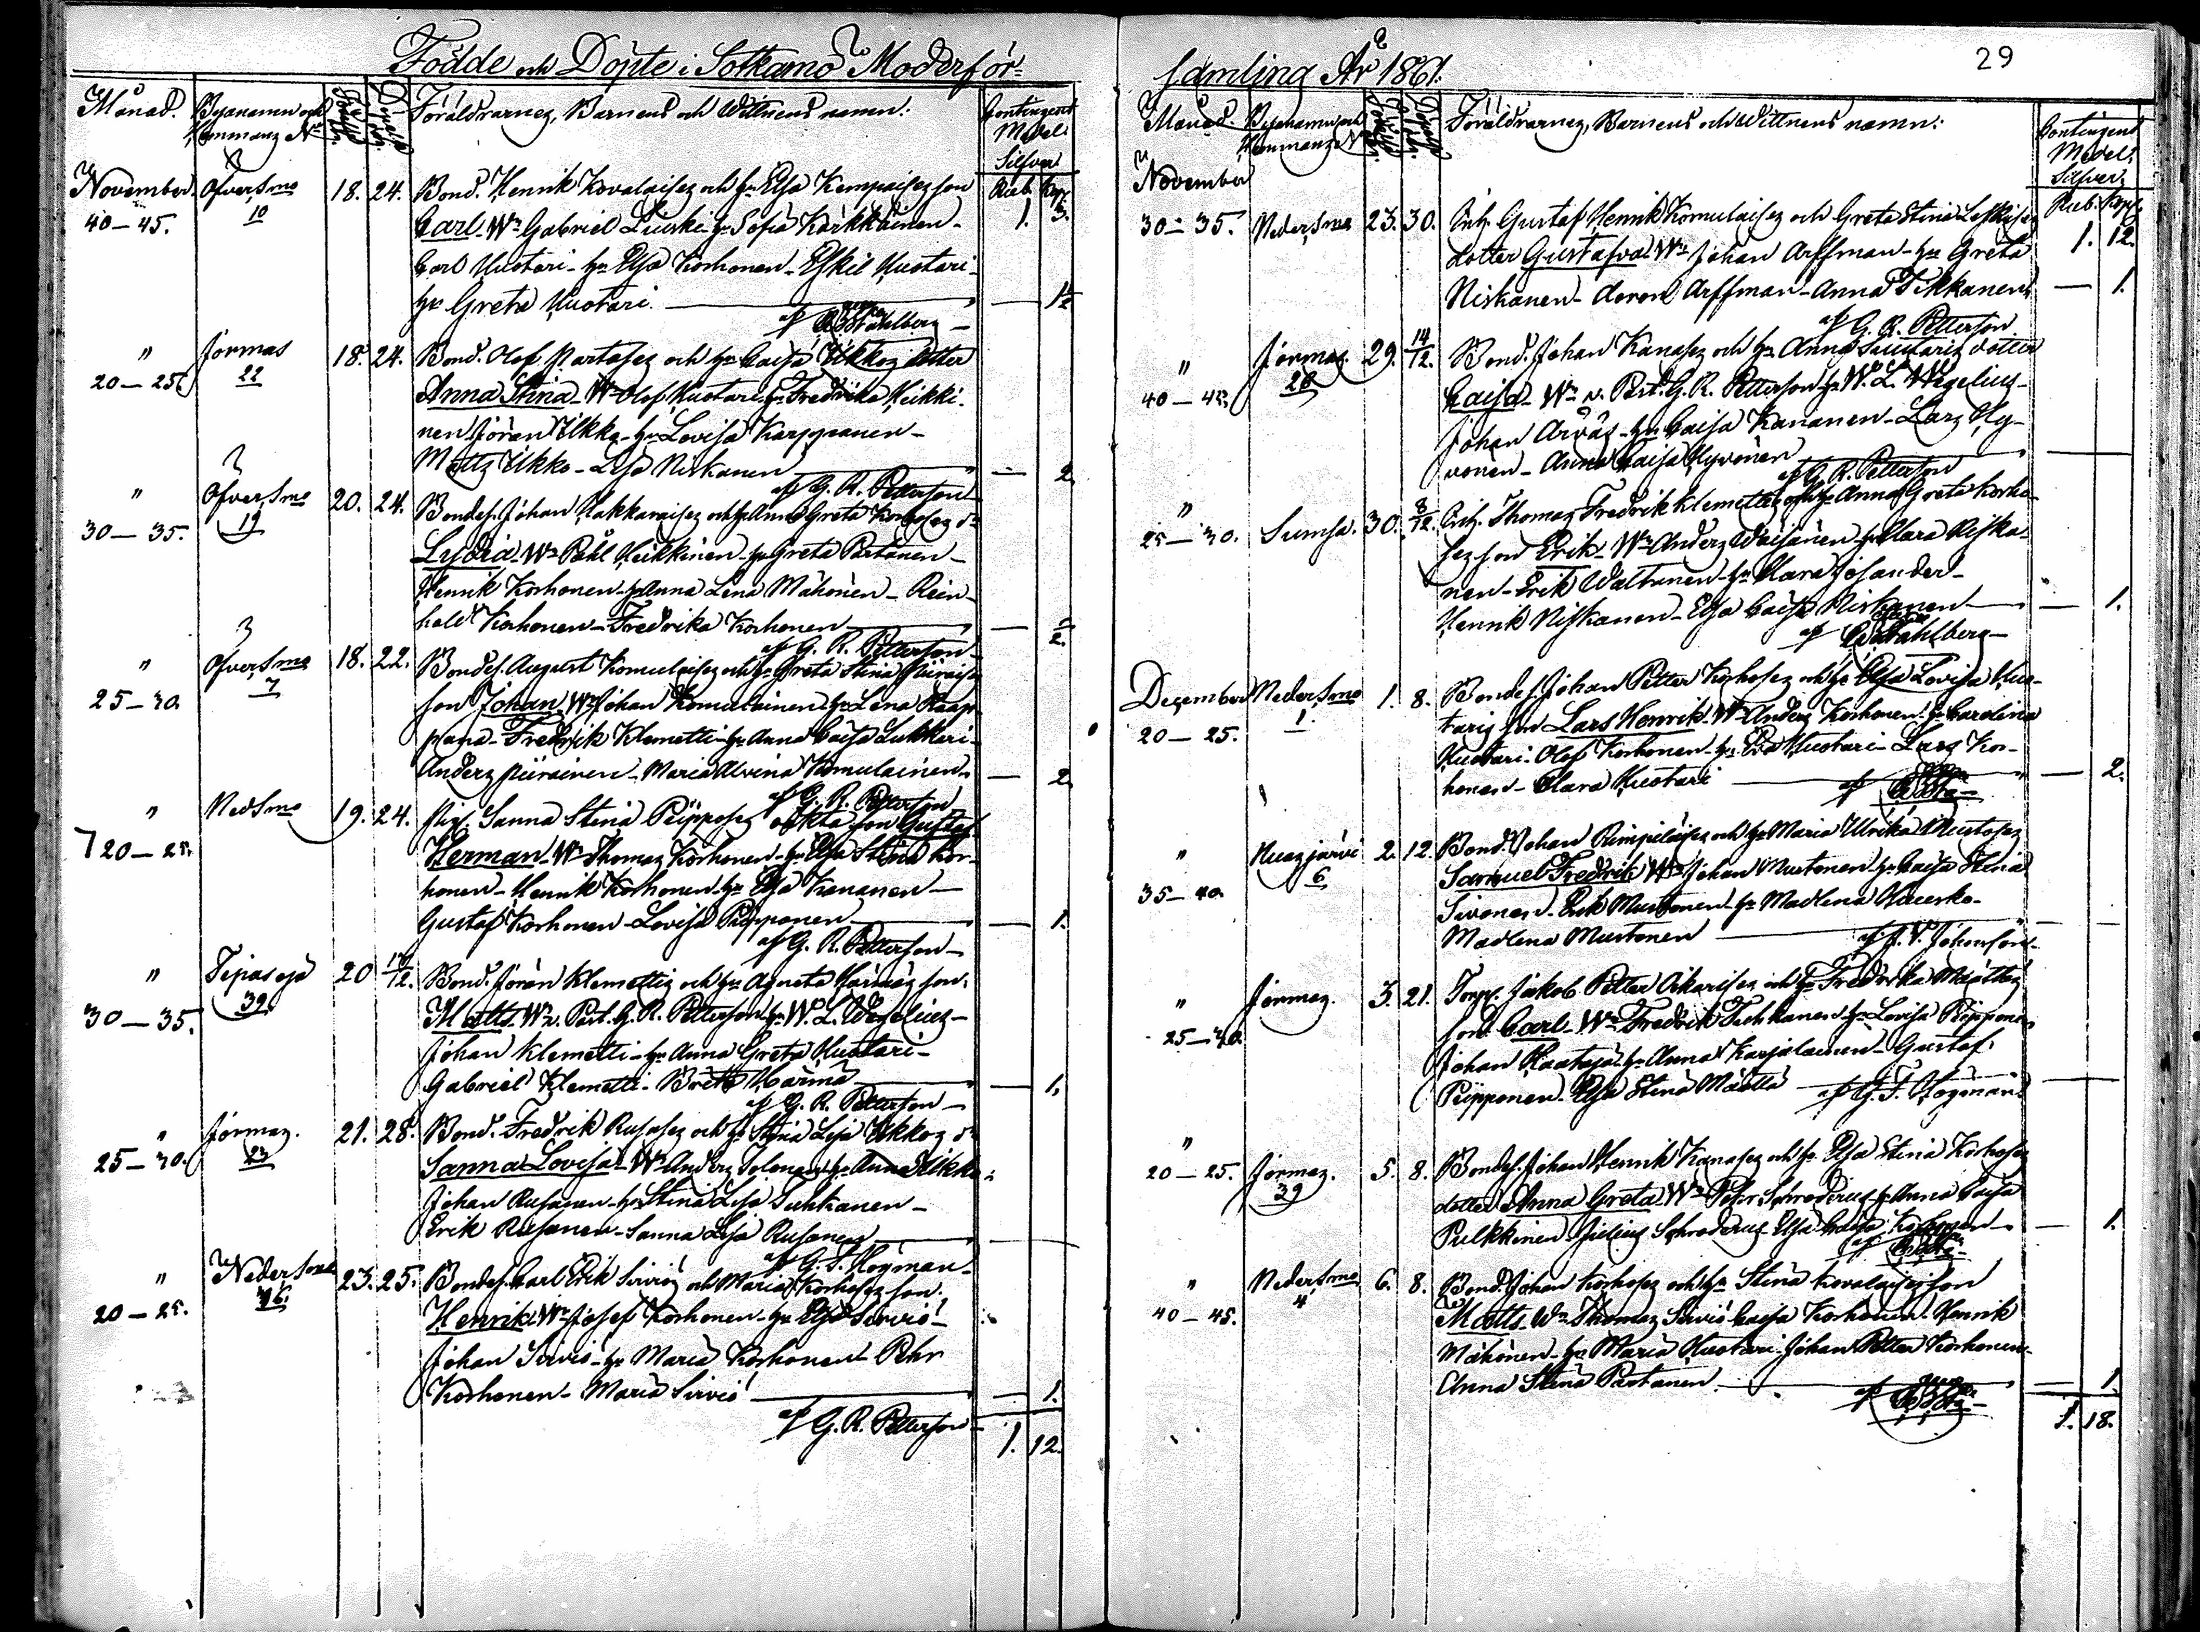 Födde och Döpte i Sotkamo Moderför-
Månad. Byanamn och Hemmans No Födde Döpte Föräldrarnes, Barnens och Wittnens namn: Contingent Medel Silfver
Rub. Kop.
November. ÖfverSmo 18. 24. Bond. Henrik Kovalaises och hu Elsa Kempaises son 1. 3.
40-45. 10 Carl. Wn Gabriel Luuski hu Sofia Karkkäinen-
Carl Huotari- hu Elsa Korhonen- Eskil Huotari-
hu Greta Huotari 1½
af Ståhlberg-
" Jormas 18. 24. Bond. Olof Partases och hu Caisa Ukkos dotter
20-25. 22 Anna Stina- Wn Olof Huotari- hu Fredrika Heikki-
nen Jöran Ukko- hu Lovisa Karppanen-
Matts Ukko- Lisa Niskanen - 2
af G. R. Petterson
" ÖfverSmo 20. 24. Bondes. Johan Hakkaraises och hu Anna Greta Korhoses dr
30-35. 19 Lydia- Wn Påhl Heikkinen- hu Greta Partanen-
Henrik Korhonen- hu Anna Lena Mähönen- Rein-
hold Korhonen- Fredrika Korhonen
af G. R. Petterson
" ÖfverSmo 18. 22. Bondes. August Komulaises och hu Greta Stina Piirais
25-30. 7 son Johan. Wn Johan Komulainen- hu Lena Raap
pana- Fredrik Klemetti- hu Anna Caisa Lukkari-
Anders Piirainen- Maria Alvina Komulainen- - 2
af G. R. Petterson
" NedSmo 19. 24. Pig. Sanna Stina Piipposes oäkta son Gustaf
20-25. Herman- Wn Thomas Korhonen- hu Elsa Stina Kor-
honen- Henrik Korhonen- hu Elsa Kananen-
Gustaf Korhonen- Lovisa Piipponen - 1.
af G. R. Petterson-
" Tipasoja 20 Bond. Jöran Klemettis och hu Agneta Härmäs son.
30-35. 39. Matts. Wn v. Past. G. R. Petterson hu W. L. Wegelius-
Johan Klemetti- hu Anna Greta Huotari-
Gabriel Klemetti- Britta Härmä - 1.
af G. R. Petterson-
" Jormas. 21. 28. Bond. Fredrik Rusases och hu Stina Lisa Ukkos dr
25-30. 23 Sanna Lovisa- Wn Anders Tolonen- hu Anna Ukko-
Johan Rusanen- hu Stina Lisa Tuhkanen-
Erik Rusanen- Sanna Lisa Rusanen
af G. F. Högman-
" NederSmo 23. 25. Bondes. Carl Erik Sirviös och Maria Korhoses son.
20-25. 46. Henrik. Wn Josef Korhonen- hu Elsa Sirviö-
Johan Sirviö- hu Maria Korhonen- Pehr
Korhonen- Maria Sirviö - 1.
af G. R. Petterson- 1. 12.
samling År 1861. 29
Månad. Byanamn och Hemmans No Födde Döpte Föräldrarnes, Barnens och Wittnens namn: Contingent Medel. Silfver.
November Rub. Kop.
30-35. NederSmo 23. 30. Inh. Gustaf Henrik Komulaises och Greta Stina Leskises 1. 12.
dotter Gustafva. Wn Johan Arffman- hu Greta
Niskanen- Aaron Arffman- Anna Tikkanen - 1.
af G. R. Petterson
" Jormas. 29. 14/12. Bond. Johan Kanases och hu Anna Suutaris dotter
40-45. 28 Caisa- Wn v. Past. G. R. Petterson hu W. L. Wegelius-
Johan Arvås- hu Caisa Kananen- Lars Hy-
vönen- Anna Caisa Hyvönen
af G. R. Petterson
" Sumsa. 30. 8/12. Inh. Thomas Fredrik Klemettis och hu Anna Greta Korho-
25-30. ses son Erik- Wn Anders Väisänen- hu Clara Niska-
nen- Erik Waltanen- hu Clara Josander-
Henrik Niskanen- Elsa Caisa Niskanen - 1.
af Ståhlberg-
December NederSmo 1. 8. Bondes. Johan Petter Korhoses och hu Elsa Lovisa Huo-
20-25. 1 taris son Lars Henrik. Wn Anders Korhonen- hu Carolina
Huotari- Olof Korhonen- hu Eva Huotari- Lars Kor-
honen- Clara Huotari - 2.
af
" Nuasjärvi 2. 12. Bond. Johan Rimpiläises och hu Maria Ulrika Mustoses
35-40. 6 Samuel Fredrik Wn Johan Mustonen- hu Caisa Stina
Sivonen- Erik Mustonen- hu Madlena Haverko-
Madlena Mustonen
af J. V. Johansson-
" Jormas. 3. 21. Torp. Jakob Petter Oikarises och hu Fredrika Määttäs
25-30. son. Carl- Wn Fredrik Tuhkanen- hu Lovisa Piipponen
Johan Raataja- hu Anna Karjalainen- Gustaf
Piipponen- Elsa Stina Määttä af G. F. Högman
" 20-25. Jormas. 5. 8. Bondes. Johan Henrik Kanases och hu Elsa Stina Korhoses
39 dotter Anna Greta. Wn Pehr Schroderus- hu Anna Caisa
Pulkkinen- Julius Schroderus- Elsa Caisa Korhonen - 1.
af
" NederSmo 6. 8. Bond. Johan Korhoses och hu Stina Kovalaises son
40-45. 4 Matts. Wn Thomas Sirviö Caisa Korhonen. Henrik
Mähönen- hu Maria Huotari- Johan Petter Korhonen-
Anna Stina Partanen - 1.
af 1. 18.